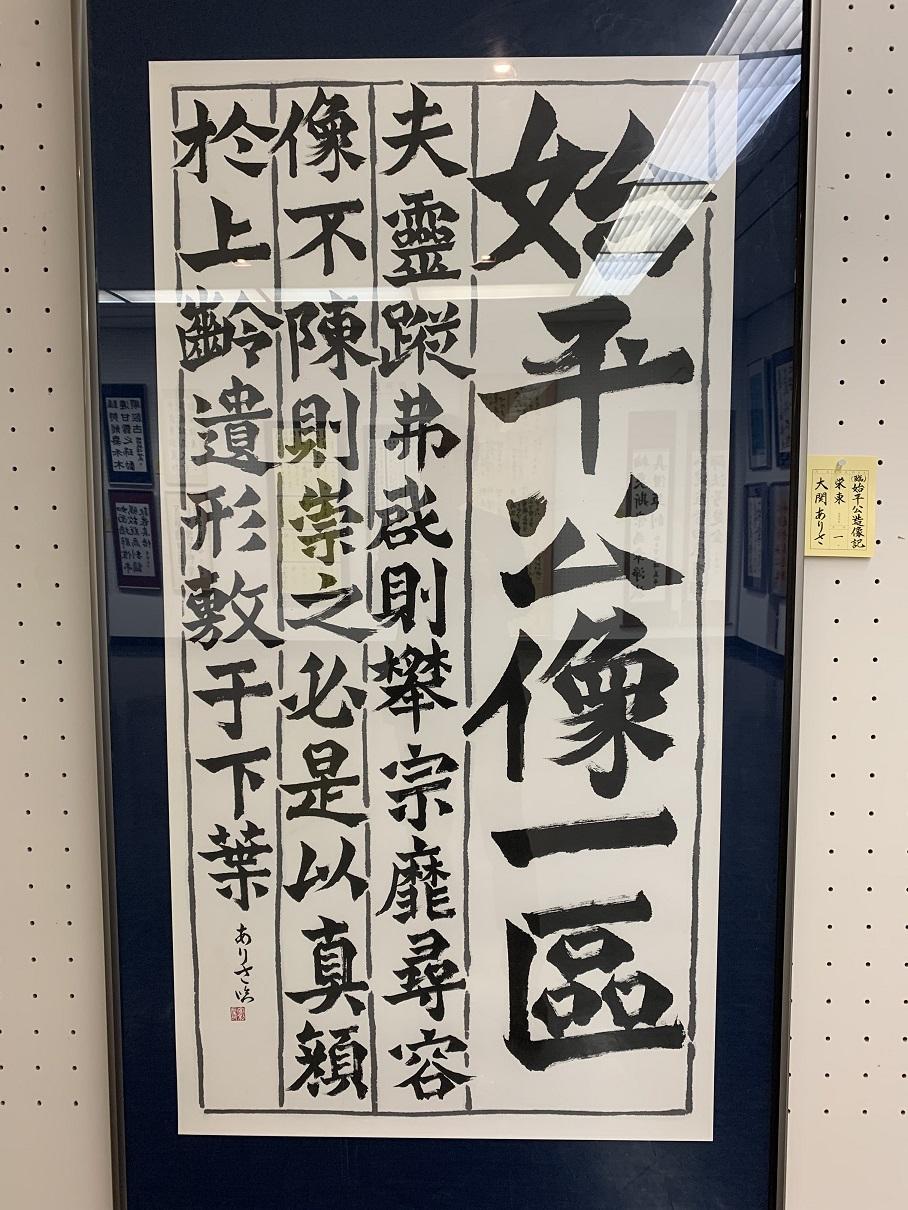 始平公像一區
夫靈蹤弗啟則攀宗靡尋容
像不陳則崇之必是以真顏
於上齡遺形敷于下葉
ありさ臨
(臨)始平公造像記
栄東 一
大関ありさ